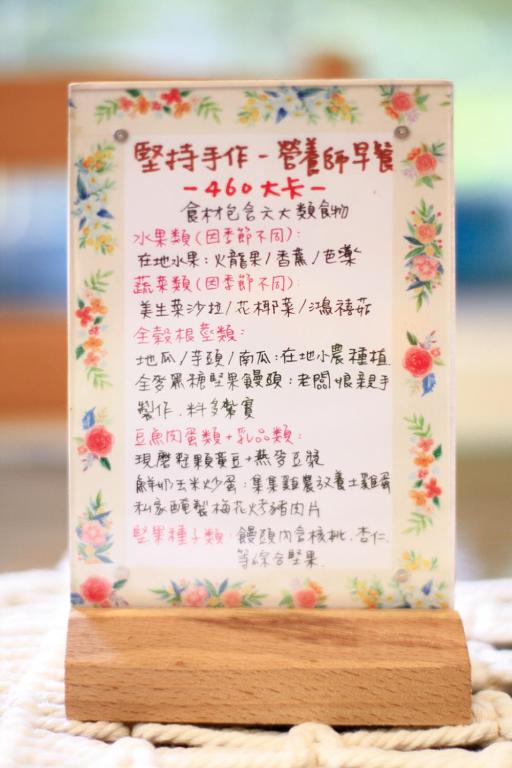 堅持手作-營養師早餐
-460大卡-
食材包含六大類食物
水果類(因季節不同):
在地水果:火龍果/香蕉/芭樂
蔬菜類(因季節不同):
美生菜沙拉/花椰菜/鴻禧菇
全穀根莖類:
地瓜/芋頭/南瓜:在地小農種植
全麥黑糖堅果饅頭:老闆娘親手
製作.料多紮實
豆魚肉蛋類+乳品類:
現磨粗顆黃豆+燕麥豆漿
鮮奶玉米炒蛋:集集雞農放養土雞蛋
私家醃製梅花烤豬肉片
堅果種子類:饅頭內含核桃.杏仁
等綜合堅果.